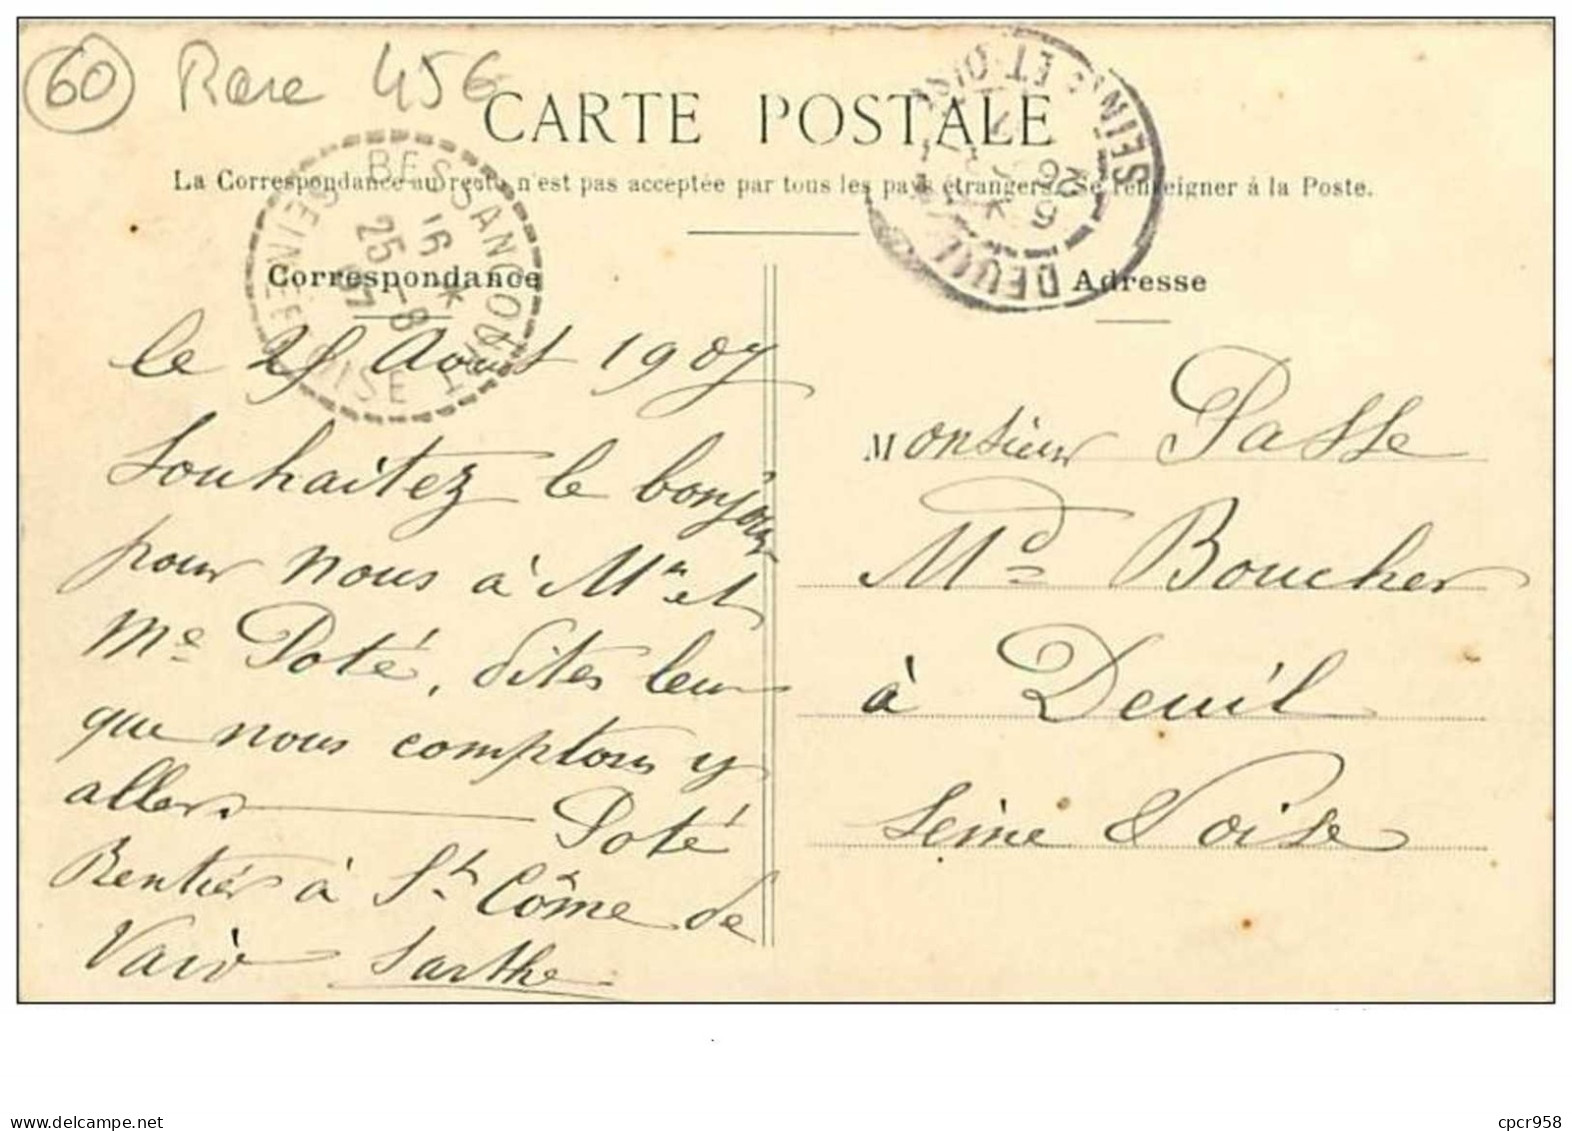 60 Rare 456
CARTE POSTALE
La Correspondance au recto n'est pas acceptée par tous les pays étrangers. Se renseigner à la Poste.
BESSANCOURT
SEINE-ET-OISE
16 *
25 -8
07
SEINE-ET-OISE
DEUIL
Correspondance
le 25 Aout 1907
Souhaitez le bonjour
pour nous à Mr et
Me Poté, dites leur
que nous comptons y
aller.
Poté
Rentier à St Côme de
Vair Sarthe
Adresse
Monsieur Passe
Md Boucher
à Deuil
Seine & Oise
www.delcampe.net
cpcr958